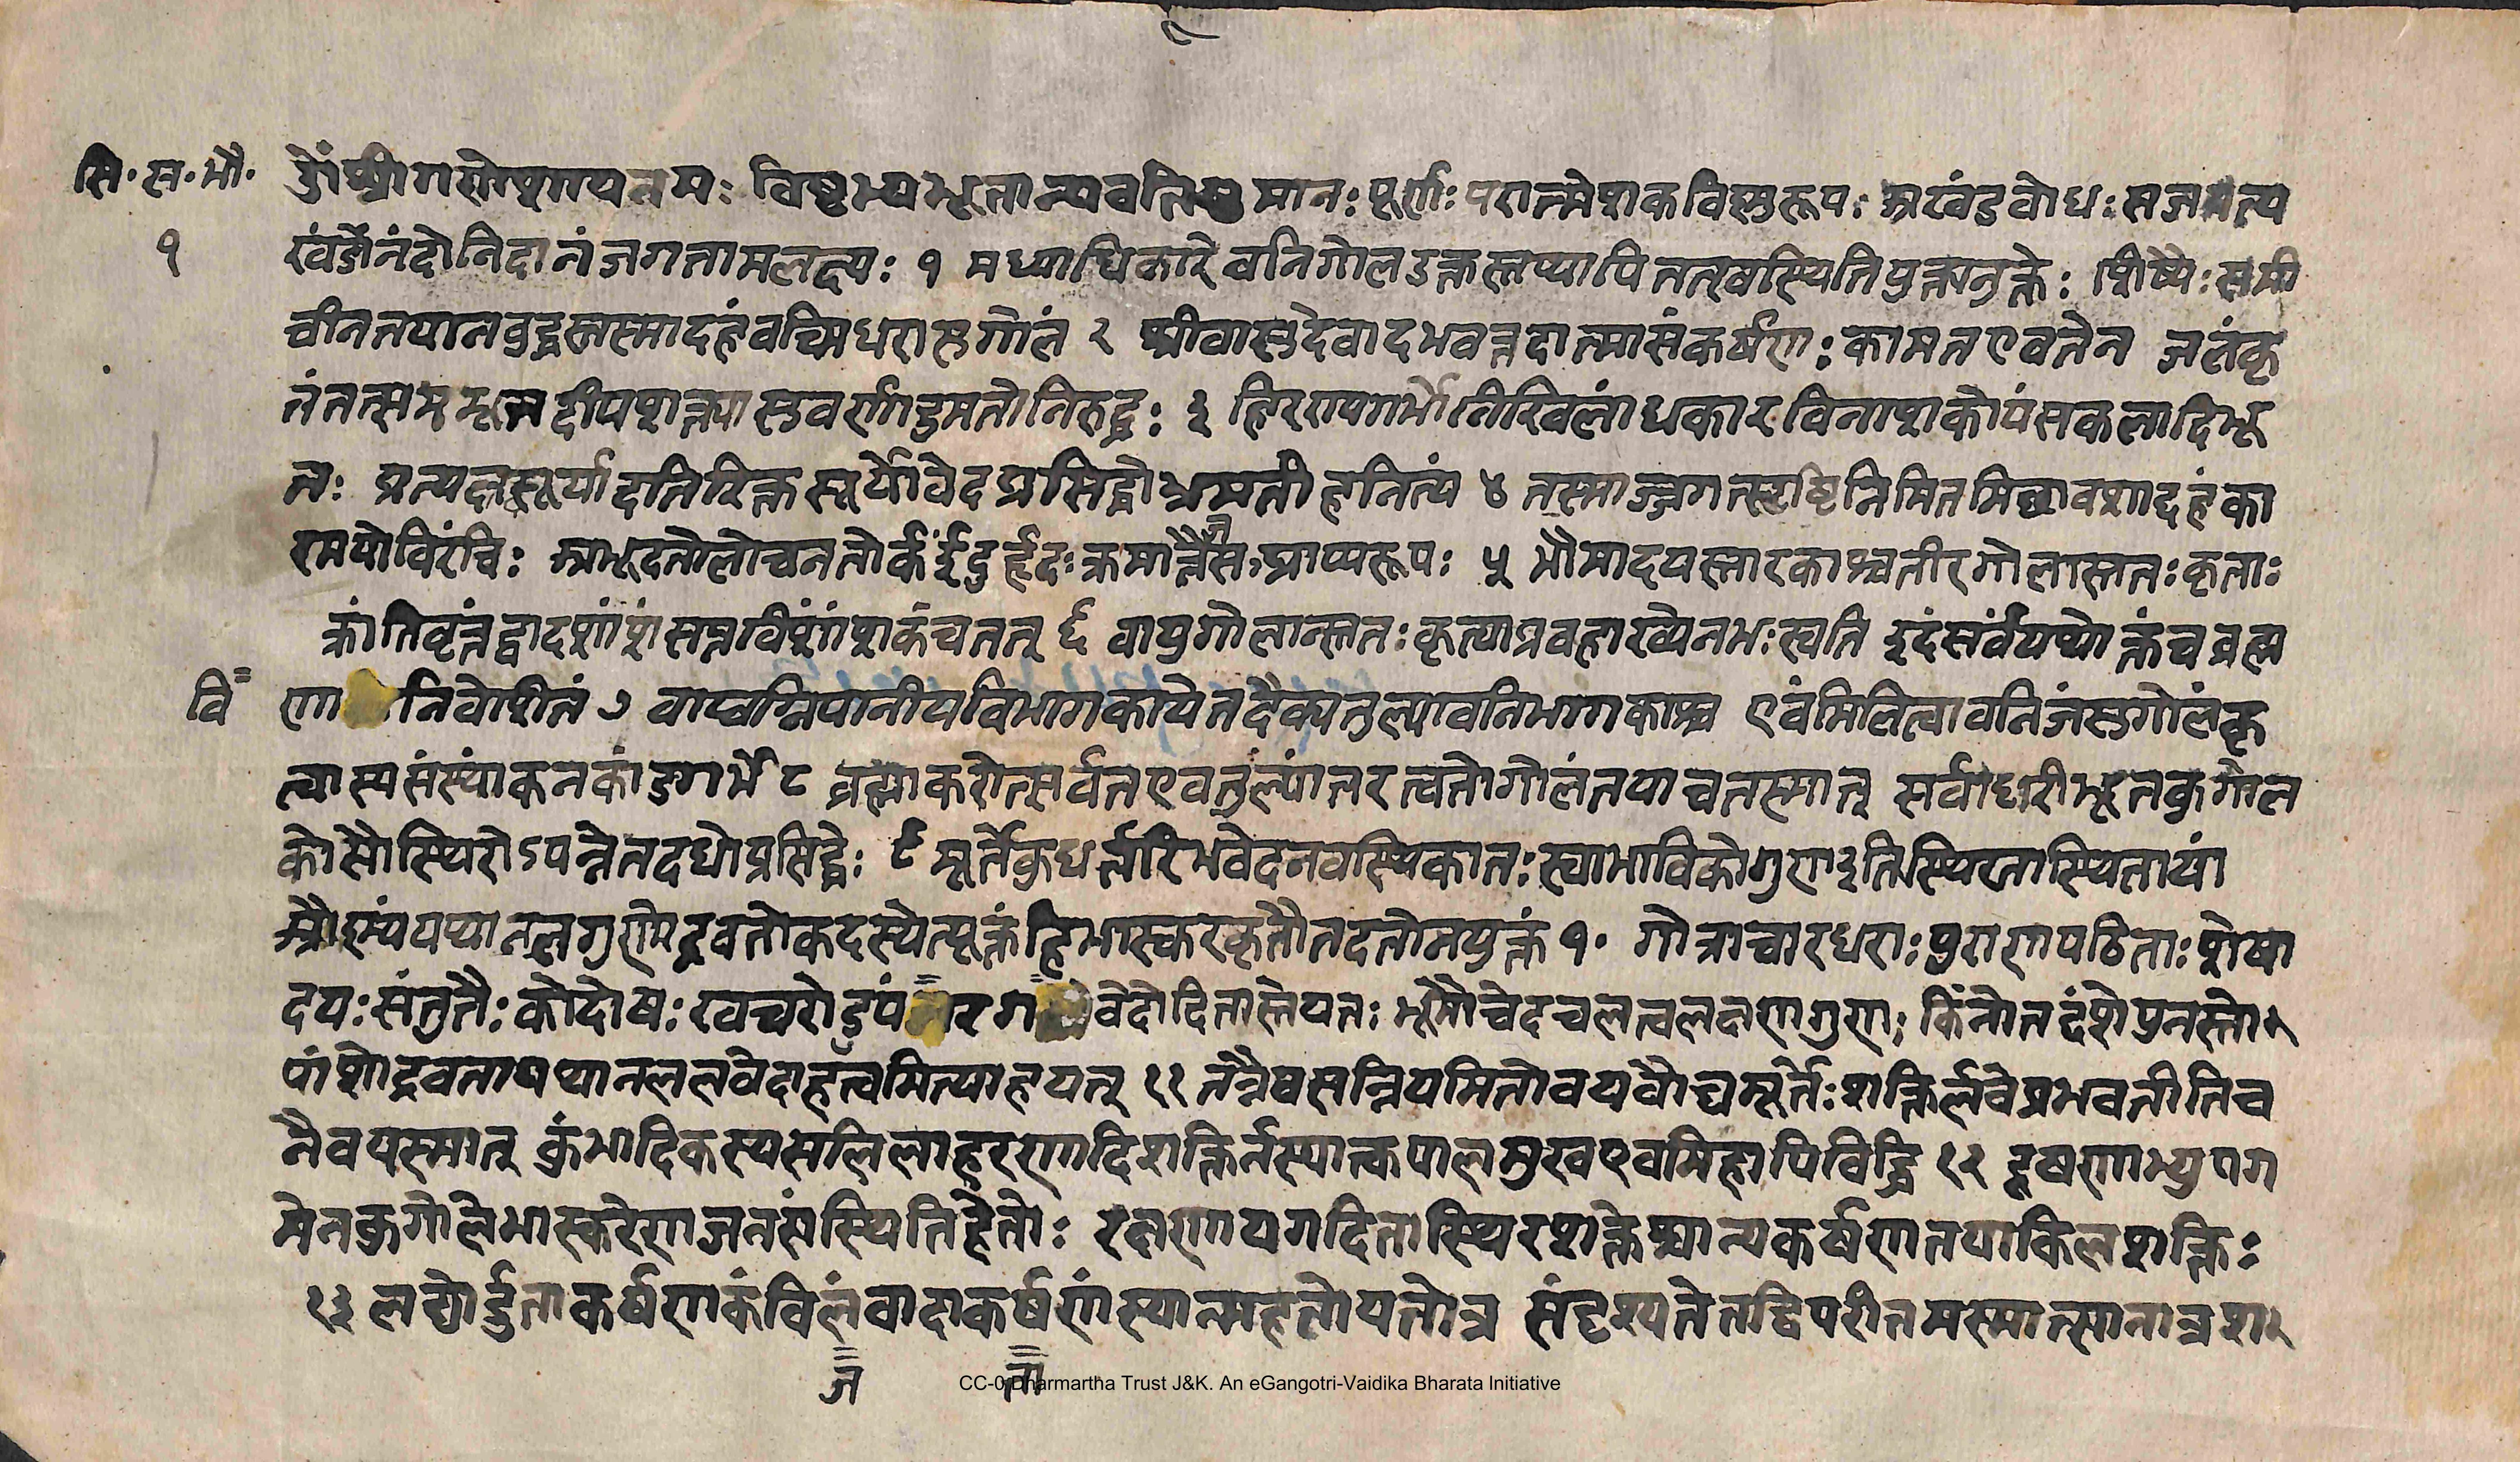 सि॰ स॰ गो॰ ॐश्रीगणेशायनमः विष्टभ्यभूतान्यवतिष्ठमानः पूर्णः परात्मेशकविष्णुरूपः अखंडबोधः सजयत्य
१ खंडानंदोनिदानंजगतामलक्ष्यः १ मध्याधिकारेवनिगोलउक्तस्तथापितत्वस्थितियुक्त्यनुक्तेः शिष्यैः समी
चीनतयानबुद्धस्तस्मादहंवच्मिधरासुगोलं २ श्रीवासुदेवादभवत्तदात्मासंकर्षणः कामतएवतेन जलंकृ
तंतत्समभूच्चदीपशक्त्यासुवर्णांडमतोनिरुद्धः ३ हिरण्यगर्भोनिखिलांधकारविनाशकोयंसकलादिभू
तः प्रत्यक्षसूर्यादतिरिक्तसूर्योवेदप्रसिद्धोभ्रमतीहनित्यं ४ तस्माज्जगत्सृष्टिनिमितमिछावशादहंका
रमयोविरंचिः आभूदतोलोचनतोर्कइंदुर्हृदः क्रमात्तैजसप्राप्यरूपः ५ भौमादयस्तारकाश्चतीरगोलास्ततःकृताः
क्रांतिवृत्तंद्वादशांशंसप्तविंशांशकंचतत् ६ वायुगोलान्ततःकृत्वाप्रवहाख्येनभःस्वति इदंसर्वंयथोक्तंचब्रह्म
वि णा निवेशितं ७ वाय्वग्निपानीयविभागकायेतदैक्यतुल्यावनिभागकाश्च एवंमिलित्वावनिजंसुगोलंकृ
त्वास्यसंस्थांकनकांडगर्भे ८ ब्रह्माकरोत्सर्वतएवतुल्यांतरत्वतोगोलंतयाचतस्मात् सर्वाधारीभूतकुगोल
कोसौस्थिरोऽपत्त्नेतदधोप्रसिद्धेः ९ मूर्तेकुधर्तारिभवेदनवस्थिकातःस्वाभाविकोगुणइतिस्थिरतास्थितायां
औष्ण्यंयथानलगुणोद्रवतोकदस्थेत्यूक्तंहिभास्करकृतौतदतोनयुक्तं १० गोत्राचारधराःपुराणपठिताःशेषा
दयःसंतुतैःकोदोषःखचरोडुपं र ग वेदोदितास्तेयतः भूमौचेदचलत्वलक्षणगुणः किंनोतदंशेपुनस्तो
यांशेद्रवतायथानललवेदाहत्वमित्याहयत् ११ तन्नैषसन्नियमितोवयवौद्यमूर्तेःशक्तिर्लवेप्रभवतीतिच
नैवयस्मात् कुंभादिकस्यसलिलाहरणादिशक्तिर्नस्यात्कपालमुखएवमिहापिविद्धि १२ दूषणाभ्युपग
मेनकुगोलेभास्करेणजनसंस्थितिहेतोः रक्षणायगदितास्थिरशक्तेश्चान्यकर्षणतयाकिलशक्तिः
१३ लघ्वोर्द्रुताकर्षणकंविलंवादाकर्षणंस्यान्महतोयतोत्र संदृश्यतेतद्विपरीतमस्मात्सानात्रश
ज ता
CC-0 Dharmartha Trust J&K. An eGangotri-Vaidika Bharata Initiative